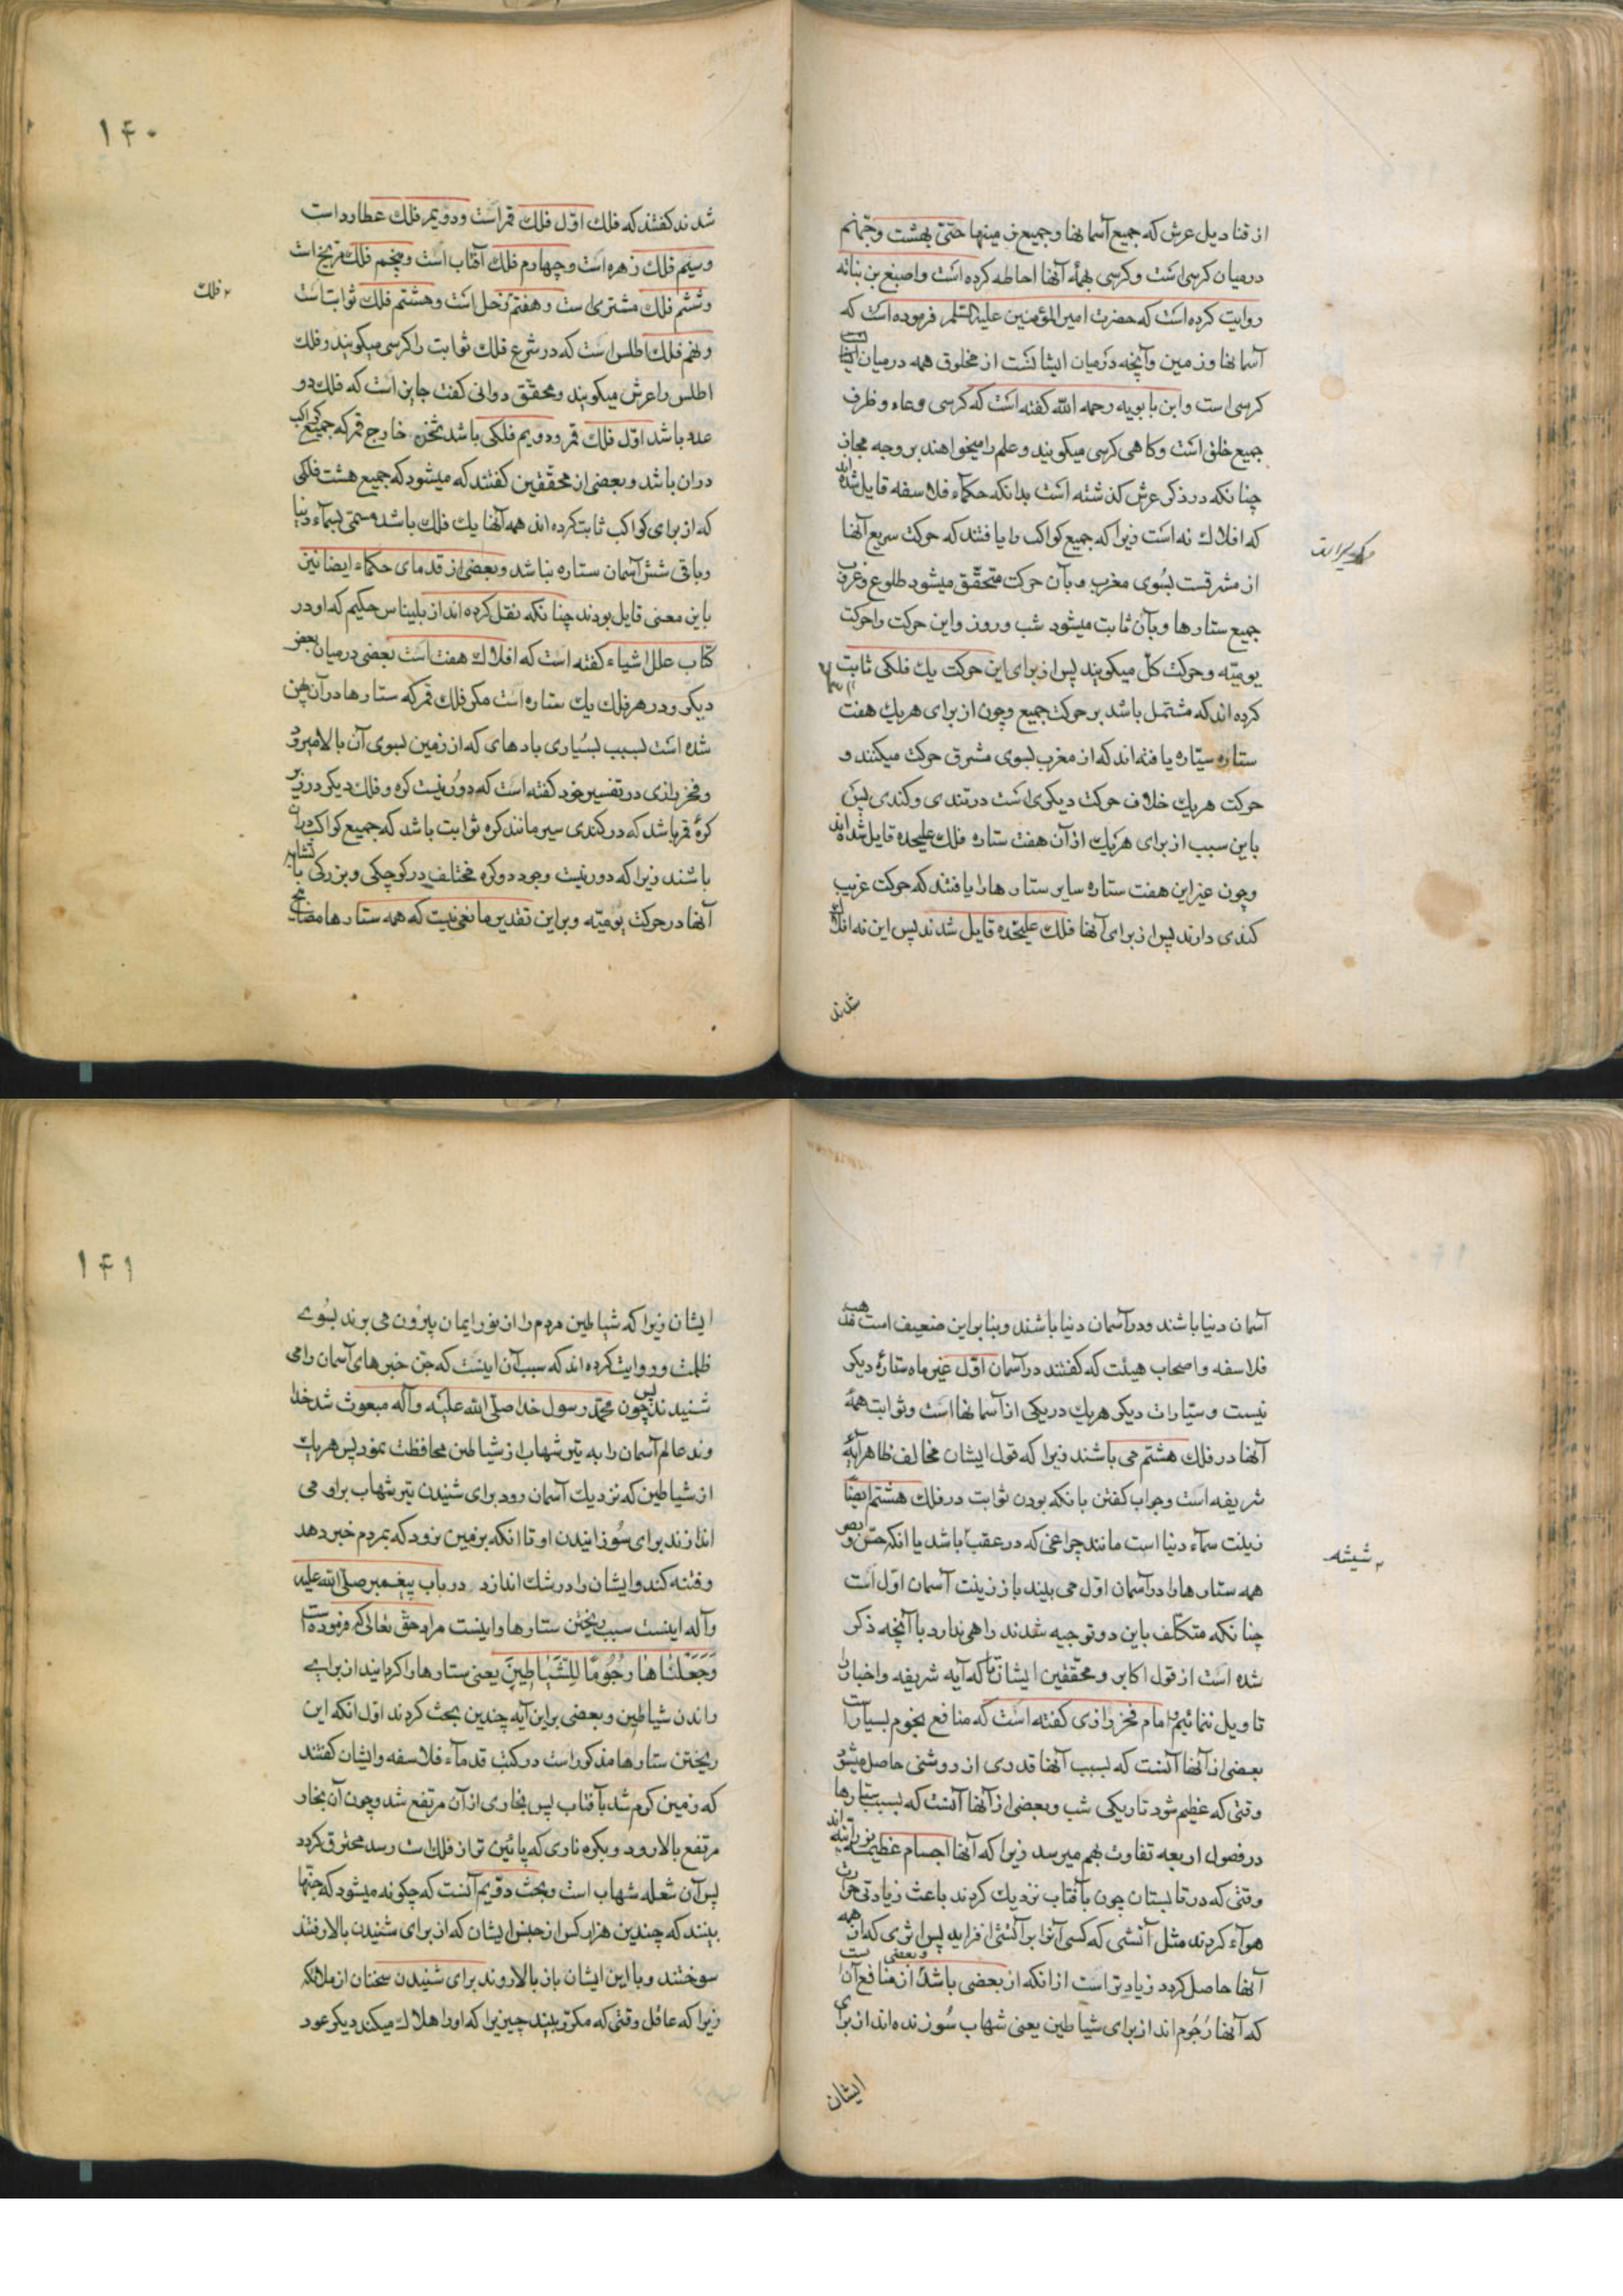 از قنادیل عرش که جمیع آسمانها و جمیع زمینها حتی بهشت و جهنم
درمیان کرسی است و کرسی بهمهٔ آنها احاطه کرده است و اصبغ بن نباته
روایت کرده است که حضرت امیرالمؤمنین علیه السلم فرموده است که
آسمانها و زمین و آنچه درمیان ایشانست از مخلوق همه درمیان
کرسی است و ابن بابویه رحمه الله گفته است که کرسی وعاء و ظرف
جمیع خلق است و کاهی کرسی میکویند و علم را میخواهند بر وجه مجاز
چنانکه در ذکر عرش کذشته است بدانکه حکمآء فلاسفه قایل شده اند
که افلاك نه است زیرا که جمیع کواکب را یافتند که حرکت سریع آنها
از مشرقست بسوی مغرب و بآن حرکت متحقق میشود طلوع و غروب
جمیع ستارها و بآن ثابت میشود شب و روز و این حرکت را حرکت
یومیّه و حرکت کل میکویند پس از برای این حرکت یك فلکی ثابت
کرده اند که مشتمل باشد بر حرکت جمیع و چون از برای هر یك هفت
ستاره سیّاره یافته اند که از مغرب بسوی مشرق حرکت میکنند و
حرکت هر یك خلاف حرکت دیکری است در تندی و کندی پس
باین سبب از برای هر یك از آن هفت ستاره فلك علیحده قایل شده اند
و چون غیر این هفت ستاره سایر ستارها را یافتند که حرکت غریب
کندی دارند پس از برای آنها فلك علیحده قایل شدند پس این نه افلاك
شدند
۱۴۰
شدند کفتند که فلك اوّل فلك قمر است و دویم فلك عطارد است
و سیّم فلك زهره است و چهارم فلك آفتاب است و پنجم فلك مریخ است
و ششم فلك مشتری است و هفتم زحل است و هشتم فلك ثوابت است
فلك
و نهم فلك اطلس است که در شرع فلك ثوابت را کرسی میکویند و فلك
اطلس را عرش میکویند و محقّق دوانی کفت جایز است که فلك دو
عدد باشد اوّل فلك قمر و دویم فلکی باشد خارج قمر که جمیع کواکب
در آن باشد و بعضی از محقّقین کفتند که میشود که جمیع هشت فلکی
که از برای کواکب ثابت کرده اند همه آنها یك فلك باشد مسمّی بسمآء دنیا
و باقی شش آسمان ستاره نباشد و بعضی از قدمای حکماء ایضا نیز
باین معنی قایل بودند چنانکه نقل کرده اند از بلیناس حکیم که او در
کتاب علل اشیاء کفته است که افلاك هفت است بعضی درمیان بعضی
دیکر و در هر فلك یك ستاره است مکر فلك قمر که ستارها در آن پهن
شده است بسبب بسیاری بادهای که از زمین بسوی آن بالا میرود
و فخر رازی در تفسیر خود کفته است که دور نیست کره و فلك دیکر در زیر
کرهٔ قمر باشد که در کندی سیر مانند کره ثوابت باشد که جمیع کواکب در آن
باشند زیرا که دور نیست وجود دو کره مختلف در کوچکی و بزرکی با تشابه
آنها در حرکت یومیّه و بر این تقدیر مانعی نیست که همه ستارها مصابیح
آسمان دنیا باشند و در آسمان دنیا باشند و بنا براین ضعیف است مذهب
فلاسفه و اصحاب هیئت که کفتند در آسمان اوّل غیر ماه ستارهٔ دیکر
نیست و سیّارات دیکر هر یك در یکی از آسمانها است و ثوابت همهٔ
آنها در فلك هشتم می باشند زیرا که قول ایشان مخالف ظاهر آیهٔ
شریفه است و جواب کفتن بانکه بودن ثوابت در فلك هشتم ایضًا
زینت سمآء دنیا است مانند چراغی که در عقب باشد یا انکه حسّ و بصر
شیشه
همه ستارها را در آسمان اوّل می بیند باز زینت آسمان اوّل است
چنانکه متکلّف باین دو توجیه شدند راهی ندارد با آنچه ذکر
شده است از قول اکابر و محقّقین ایشان تا که آیه شریفه و اخبار را
تاویل ننمائیم و امام فخر رازی کفته است که منافع نجوم بسیار است
بعضی از آنها آنست که بسبب آنها قدری از روشنی حاصل میشود
وقتی که عظیم شود تاریکی شب و بعضی از آنها آنست که بسبب ستارها
در فصول اربعه تفاوت بهم میرسد زیرا که آنها اجسام عظیمه نورانیّه اند
وقتی که در تابستان چون بآفتاب نزدیك کردند باعث زیادتی حرارت
هوآء کردند مثل آتشی که کسی آنرا بر آتشی افزاید پس اثری که از همه
آنها حاصل کردد زیادتر است از انکه از بعضی باشد و بعضی از منافع آن است
که آنها رُجُوم اند از برای شیاطین یعنی شهاب سوزنده اند از برای
ایشان
۱۴۱
ایشان زیرا که شیاطین مردم را از نور ایمان بیرون می برند بسوے
ظلمت و روایت کرده اند که سبب آن اینست که جن خبرهای آسمان را می
شنیدند پس چون محمّد رسول خدا صلّی الله علیه وآله مبعوث شد خدا
وند عالم آسمان را به تیر شهاب از شیاطین محافظت نمود پس هر یك
از شیاطین که نزدیك آسمان رود برای شنیدن تیر شهاب براو می
اندازند برای سوزانیدن او تا انکه بزمین نرود که بمردم خبر دهد
و فتنه کند و ایشان را در شك اندازد در باب پیغمبر صلّی الله علیه
وآله اینست سبب ریختن ستارها و اینست مراد حق تعالی که فرموده است
وَجَعَلْنَاهَا رُجُومًا لِلشَّيَاطِينَ یعنی ستارها را کردانیدیم از براے
راندن شیاطین و بعضی بر این آیه چندین بحث کردند اوّل انکه این
ریختن ستارها مذکور است در کتب قدمآء فلاسفه و ایشان کفتند
که زمین کرم شد بآفتاب پس بخاری از آن مرتفع شد و چون آن بخار
مرتفع بالا رود و بکره ناری که پائین تر از فلك است رسد محترق کردد
پس آن شعله شهاب است و بحث دویم آنست که چکونه میشود که جنّها
ببینند که چندین هزار کس از جنس ایشان که از برای شنیدن بالا رفتند
سوختند و با این ایشان باز بالا روند برای شنیدن سخنان از ملائکه
زیرا که عاقل وقتی که مکرّر ببیند چیزیرا که او را هلاك میکند دیکر عود